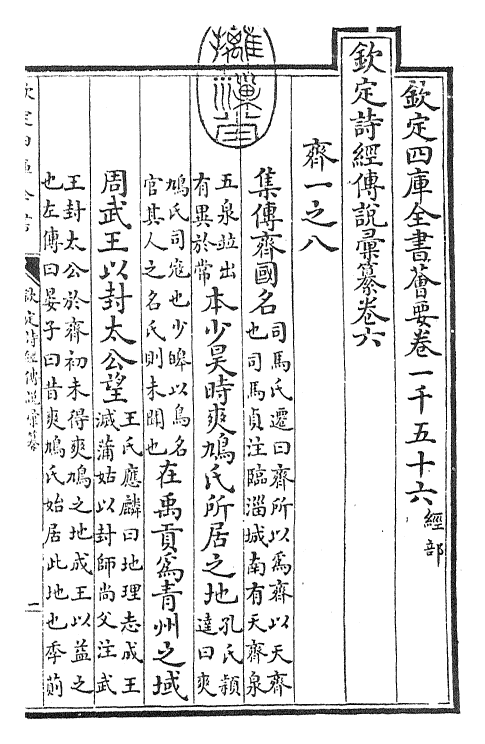 欽定四庫全書薈要卷一千五十六 經部
欽定詩經傳說彙纂卷六
齊一之八
集傳齊國名 司馬氏遷曰齊所以為齊以天齊
也司馬貞注臨淄城南有天齊泉
五泉竝出
有異於常 本少昊時爽鳩氏所居之地 孔氏穎
達曰爽
鳩氏司寇也少皞以鳥名
官其人之名氏則未聞也 在禹貢為青州之域
周武王以封太公望 王氏應麟曰地理志成王
滅蒲姑以封師尚父注武
王封太公於齊初未得爽鳩之地成王以益之
也左傳曰晏子曰昔爽鳩氏始居此地也季萴
欽定四庫全書
欽定詩經傳說彙纂
一
摛藻堂